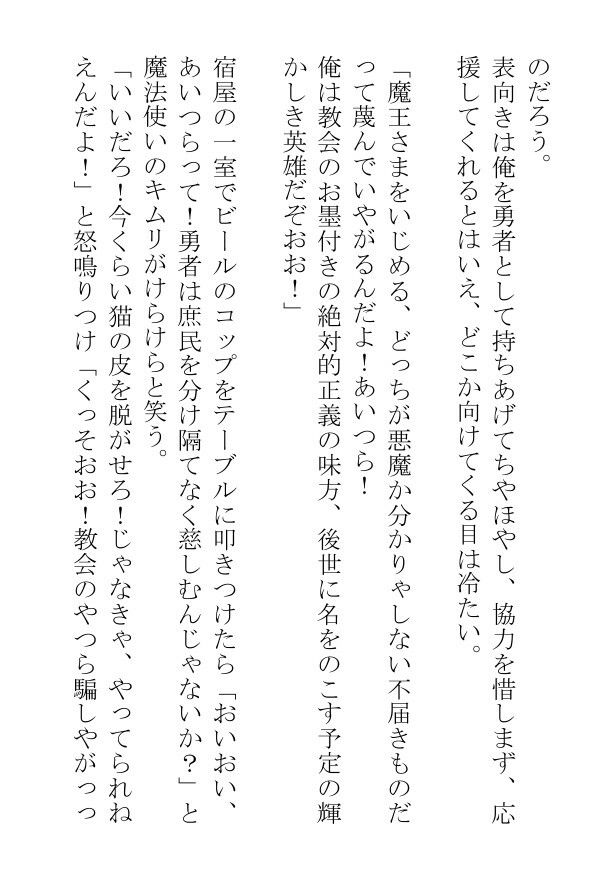 のだろう。
表向きは俺を勇者として持ちあげてちやほやし、協力を惜しまず、応
援してくれるとはいえ、どこか向けてくる目は冷たい。
「魔王さまをいじめる、どっちが悪魔か分かりゃしない不届きものだ
って蔑んでいやがるんだよ！あいつら！
俺は教会のお墨付きの絶対的正義の味方、後世に名をのこす予定の輝
かしき英雄だぞおお！」
宿屋の一室でビールのコップをテーブルに叩きつけたら「おいおい、
あいつらって！勇者は庶民を分け隔てなく慈しむんじゃないか？」と
魔法使いのキムリがけらけらと笑う。
「いいだろ！今くらい猫の皮を脱がせろ！じゃなきゃ、やってられね
えんだよ！」と怒鳴りつけ「くっそおお！教会のやつら騙しやがっっ